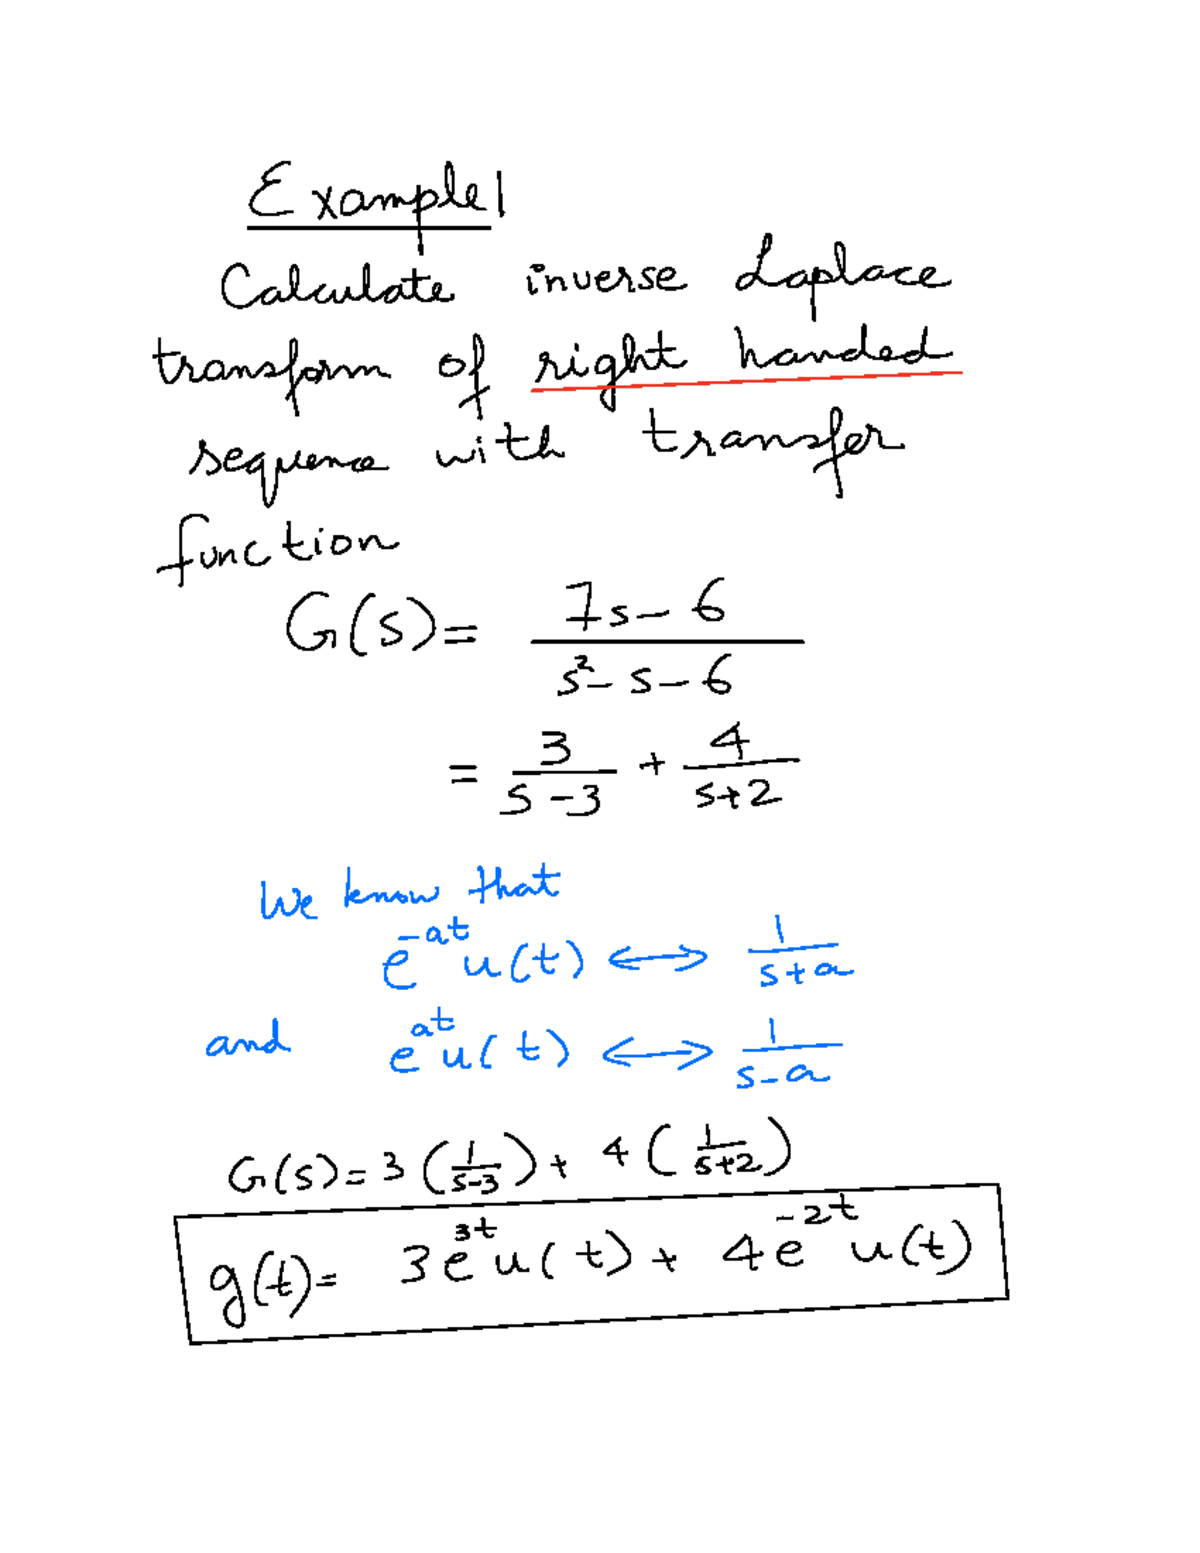 Example 1
Calculate inverse Laplace
transform of right handed
sequence with transfer
function
G(s) = (7s - 6)/(s² - s - 6)
= 3/(s - 3) + 4/(s+2)
We know that
e^(-at) u(t) ↔ 1/(s+a)
and e^(at) u(t) ↔ 1/(s-a)
G(s) = 3 (1/(s-3)) + 4 (1/(s+2))
g(t) = 3e^(3t) u(t) + 4e^(-2t) u(t)